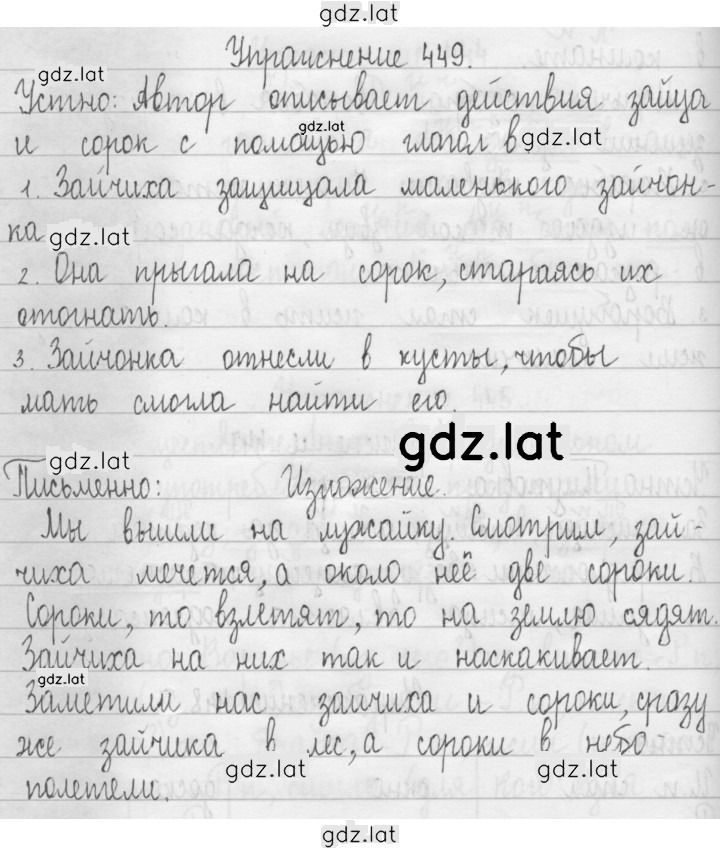 gdz.lat
Упражнение 449.
gdz.lat
Устно: Автор описывает действия зайца
gdz.lat
и сорок с помощью глагол в gdz.lat
1. Зайчиха защищала маленького зайчон-
ка gdz.lat
2. Она прыгала на сорок, стараясь их
отогнать.
3. Зайчонка отнесли в кусты, чтобы
мать смогла найти его.
gdz.lat
gdz.lat
Письменно: Изложение.
Мы вышли на лужайку. Смотрим, зай-
чиха мечется, а около неё две сороки.
Сороки, то взлетят, то на землю сядят.
Зайчиха на них так и наскакивает.
gdz.lat
Заметили нас зайчиха и сороки, сразу
же зайчика в лес, а сороки в небо
gdz.lat gdz.lat
полетели.
gdz.lat